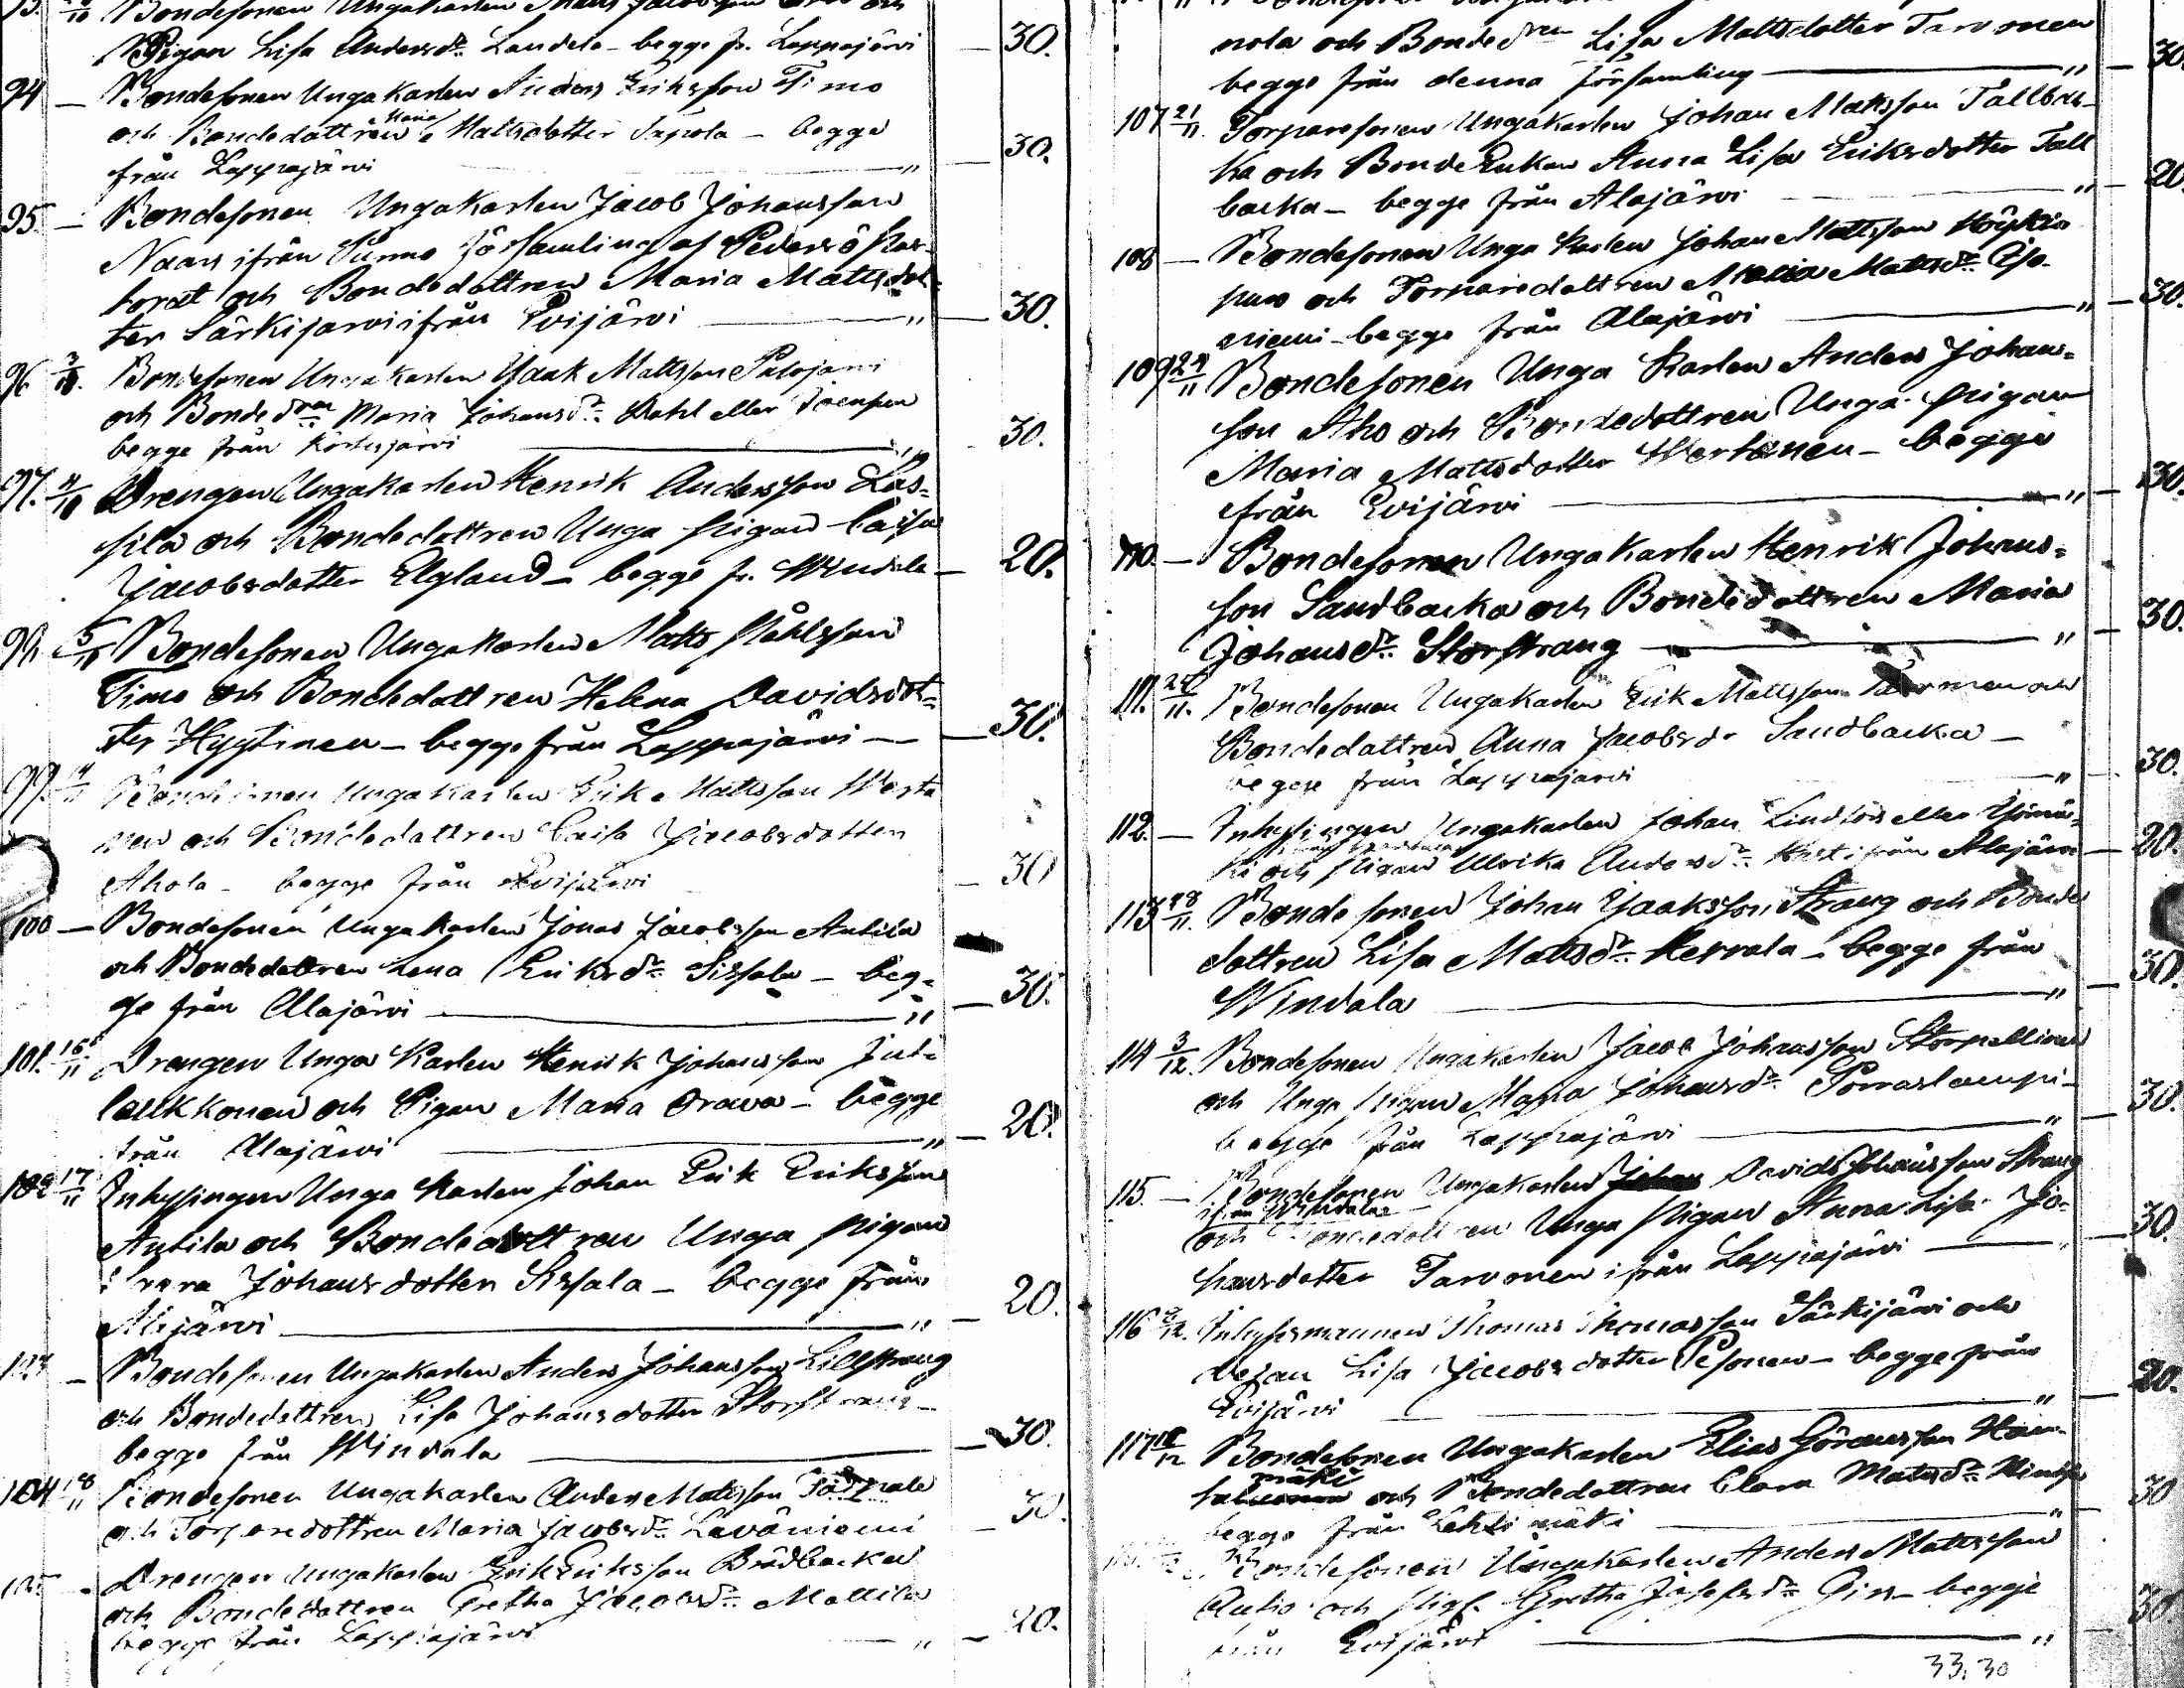 Bondesonen Ungakarlen Matts Jacobsson
Pigan Lisa Andersdr Landela - begge fr. Lappajärvi — 30.
94 — Bondesonen Ungakarlen Anders Eriksson Timo
och Bondedottren Maria Mattsdotter Sapola - begge
från Lappajärvi " — 30.
95 — Bondesonen Ungakarlen Jacob Johansson
Naars ifrån Purmo Församling af Pedersö Pas-
torat och Bondedottren Maria Mattsdot-
ter Särkijärvi ifrån Evijärvi " — 30.
96 3/10. Bondesonen Ungakarlen Isaak Mattsson Palojärvi
och Bondedren Maria Johansdr Dahl eller
begge från Kortesjärvi " 30.
97. 4/10 Drengen Ungakarlen Henrik Andersson Las-
sila och Bondedottren Unga pigan Caisa
Jacobsdotter Elgland - begge fr. Windala — 20.
98 5/11 Bondesonen Ungakarlen Matts
Timo och Bondedottren Helena Davidsdot-
ter Hyytinen - begge från Lappajärvi — 30.
99. Bondesonen Ungakarlen Erik Mattsson Werta
nen och Bondedottren Caisa Jacobsdotter
Ahola - begge från Evijärvi — 30
100 — Bondesonen Ungakarlen Jonas Jacobsson Antila
och Bondedottren Lena Eriksdr Sissala - beg-
ge från Alajärvi " — 30.
101. 16/11 Drengen Unga Karlen Henrik Johansson
laukkonen och Pigan Maria Orava - begge
från Alajärvi " — 20.
102 17/11 Inhysingen Unga Karlen Johan Erik Eriksson
Antila och Bondedottren Unga pigan
Johansdotter Sissala - begge från
Alajärvi " — 20.
103 — Bondesonen Ungakarlen Anders Johansson Lillstrang
och Bondedottren Lisa Johansdotter Storstrang -
begge från Windala — 30.
104 18/11 Bondesonen Ungakarlen Anders Mattsson
och Torparedottren Maria Jacobsdr Savöniemi — 30.
105 - Drengen Ungakarlen Erik Eriksson Brådbacka
och Bondedottren Gretha Jacobsdr Mattila
begge från Lappajärvi " — 20.
nola och Bondedren Lisa Mattsdotter Tarvonen
begge från denna församling " — 30
107 21/11. Torparesonen Ungakarlen Johan Matsson Tallbac-
ka och BondeEnkan Anna Lisa Eriksdotter Tall
backa - begge från Alajärvi " — 20
108 — Bondesonen Unga Karlen Johan Mattsson
och Torparedottren Maria Mattsdr Iso-
niemi - begge från Alajärvi " — 30.
109 24/11 Bondesonen Unga Karlen Anders Johans-
son Aho och Bondedottren Unga pigan
Maria Mattsdotter Wertanen - begge
från Evijärvi " — 30.
110. — Bondesonen Ungakarlen Henrik Johans-
son Sandbacka och Bondedottren Maria
Johansdr Storstrang " — 30.
111. 11. Bondesonen Ungakarlen Erik Mattsson Tarvonen och
Bondedottren Anna Jacobsdr Sandbacka -
begge från Lappajärvi " — 30.
112. — Inhysingen Ungakarlen Johan Lindfors eller
och Pigan Ulrika Andersdr ifrån Alajärvi — 20.
113 28/11. Bondesonen Johan Isaksson Strang och Bonde
dottren Lisa Mattsdr Kerrola - begge från
Windala " — 30.
114 3/12. Bondesonen Ungakarlen Jacob Johansson Storpellinen
och Unga Pigan Maria Johansdr Porraslampi -
begge från Lappajärvi " — 30.
115. — Bondesonen Ungakarlen Davids Johansson Strang
ifrån Windala
och Bondedottren Unga Pigan Anna Lisa Jo-
hansdotter Tarvonen ifrån Lappajärvi — 30.
116 /12. Inhysesmannen Thomas Thomasson Särkijärvi och
Lisa Jacobsdotter Pesonen - begge från
Evijärvi " — 20.
117 /12 Bondesonen Ungakarlen Elias Göransson
mäki och Bondedottren Clara Matsdr
begge från Lehtimäki " 30
Bondesonen Ungakarlen Anders Mattsson
Autio och Pig. Gretha Josefsdr - begge
från Evijärvi " — 30
33.30